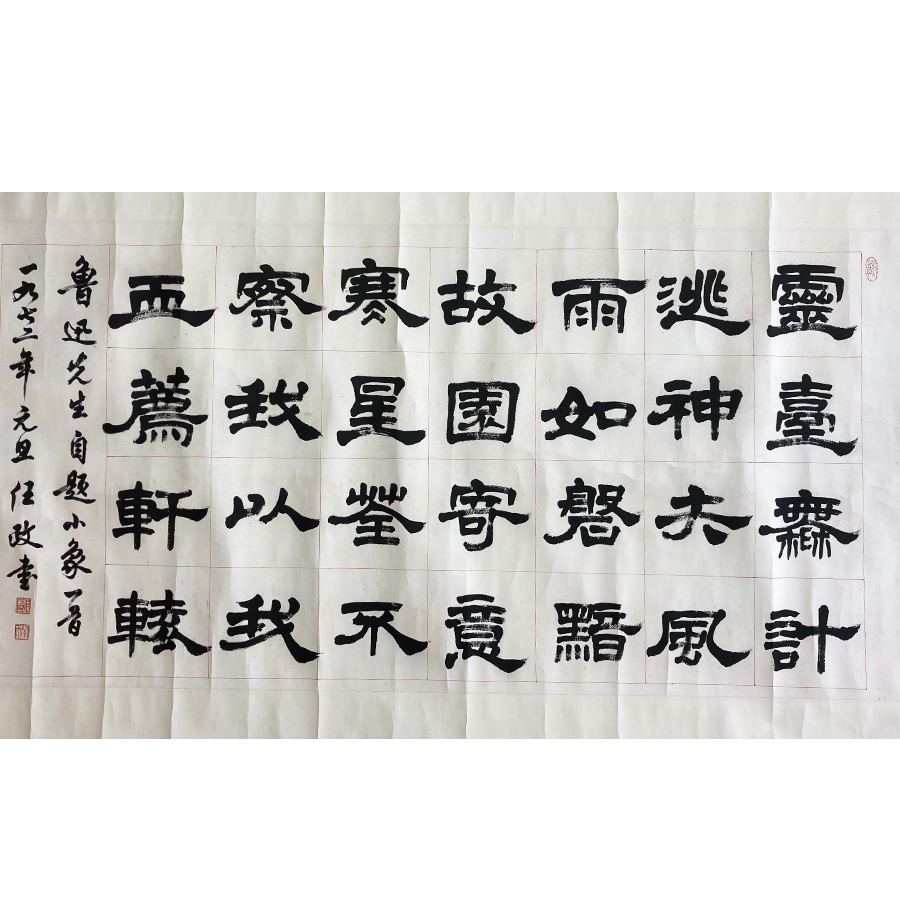 靈臺無計
逃神矢風
雨如磐黯
故園寄意
寒星荃不
察我以我
血薦軒轅
魯迅先生自題小象一首
一九七三年元旦任政書